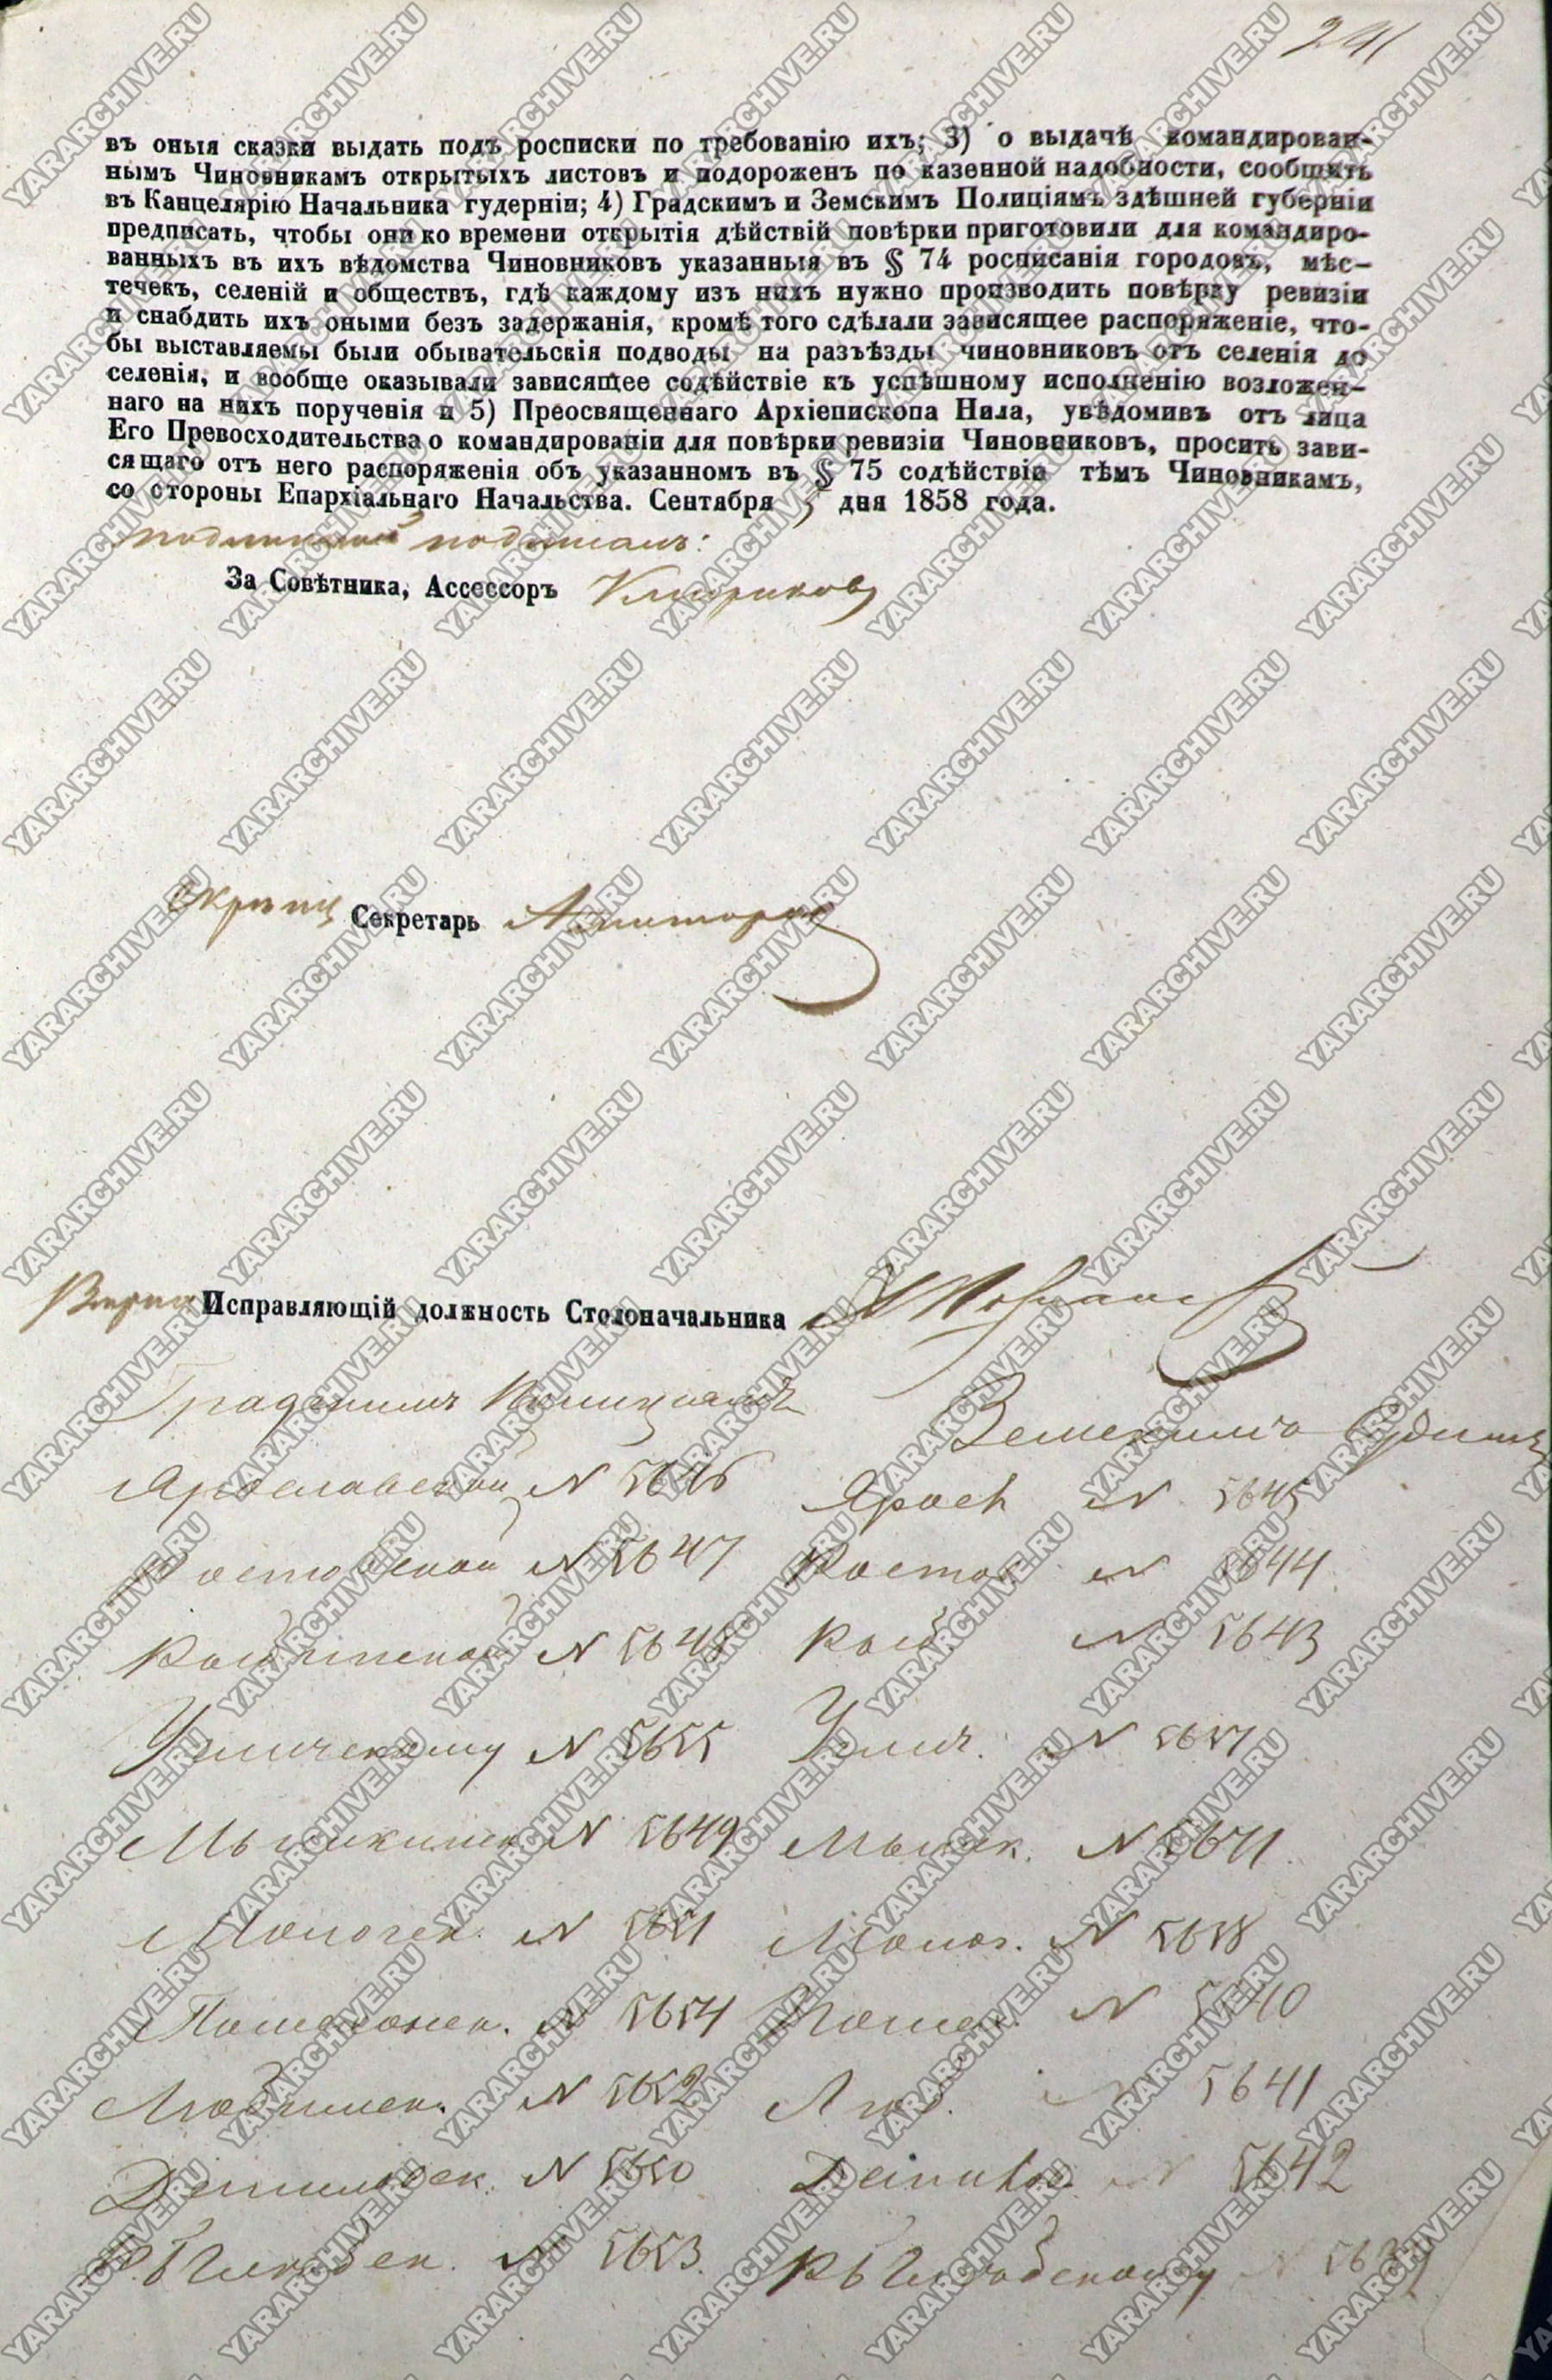 241
въ оныя сказки выдать подъ росписки по требованію ихъ; 3) о выдачѣ командирован-
нымъ Чиновникамъ открытыхъ листовъ и подорожень по казенной надобности, сообщить
въ Канцелярію Начальника гудерніи; 4) Градскимъ и Земскимъ Полиціямъ здѣшней губерніи
предписать, чтобы они ко времени открытія дѣйствій повѣрки приготовили для командиро-
ванныхъ въ ихъ вѣдомства Чиновниковъ указанныя въ § 74 росписанія городовъ, мѣс-
течекъ, селеній и обществъ, гдѣ каждому изъ нихъ нужно производить повѣрку ревизіи
и снабдить ихъ оными безъ задержанія, кромѣ того сдѣлали зависящее распоряженіе, что-
бы выставляемы были обывательскія подводы на разъѣзды чиновниковъ отъ селенія до
селенія, и вообще оказывали зависящее содѣйствіе къ успѣшному исполненію возложен-
наго на нихъ порученія и 5) Преосвященнаго Архіепископа Нила, увѣдомивъ отъ лица
Его Превосходительства о командированіи для повѣрки ревизіи Чиновниковъ, просить зави-
сящаго отъ него распоряженія объ указанномъ въ § 75 содѣйствіи тѣмъ Чиновникамъ,
со стороны Епархіальнаго Начальства. Сентября 5 дня 1858 года.
подлинный подписалъ:
За Совѣтника, Ассессоръ
Скрѣпилъ Секретарь
Вѣрно Исправляющій должность Столоначальника
Градскимъ Полиціямъ Земскимъ Судамъ
Ярославской N 5646 Яросл N 5645
Ростовской N 5647 Ростов N 5644
Рыбинской N 5648 Рыб N 5643
Угличскому N 5655 Углич. N 5657
Мышкинск N 5649 Мышк. N
Мологск. N 5651 Молог. N
Пошехонск. N 5654 Пошех. N 5640
Любимск. N 5652 Люб. N 5641
Даниловск. N 5650 Данилов. N 5642
Р Б Слободск. N 5653. Р Б Слободскому N